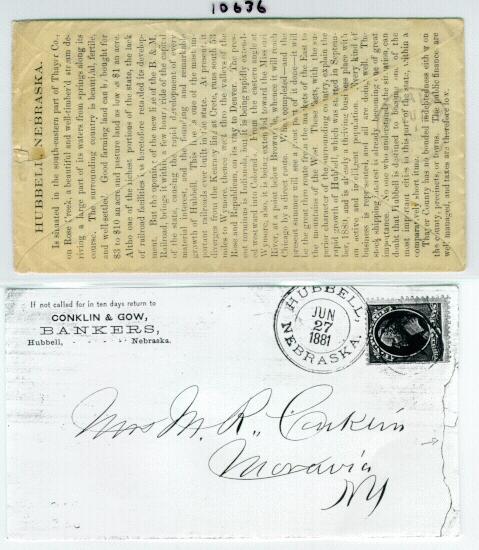 10636
HUBBELL, NEBRASKA.
Is situated in the south-eastern part of Thayer Co.,
on Rose Creek, a beautiful and well-timber'd stream de-
riving a large part of its waters from springs along its
course. The surrounding country is beautiful, fertile,
and well settled. Good farming land can be bought for
$3 to $10 an acre, and pasture land as low as $1 an acre.
Altho one of the richest portions of the state, the lack
of railroad facilities has retarded its develop-
ment, but the opening of the new line of the B. & M.
Railroad brings it within a few hours' ride of the capital
of the state, causing the rapid development of every
material interest, and the and remarkable
growth of Hubbell. This line is one of the most im-
portant railroads ever built in the state. At present, it
diverges from the Kearney line at Crete, runs south 53
miles to Wymore, thence west thro the valleys of the
Rose and Republican, on its way to Denver. The pres-
ent terminus is Indianola, but it is being rapidly extend-
ed westward. Instead of turning a north-eastern angle at
Wymore, also, it is being extended toward the Missouri
River, at a point below Brownville, whence it will reach
Chicago by a direct route. When completed—and the
present summer will see a great part of it done—it will
be the great thro route from the markets of the East to
the mountains of the West. These facts, with the su-
perior character of the country, explain the
rapid growth of Hubbell, which was started in Septem-
ber, 1880, and is already a thriving business place with
an active and intelligent population. Every kind of
business is represented, and all are doing well. The
stock shipping interest is already becoming one of great
importance. No one who understands the situation, can
doubt that Hubbell is destined to become one of the
most important cities in this part of the state, within a
comparatively short time.
Thayer County has no bonded indebtedness either on
the county, precincts, or towns. The public finance are
well managed, and taxes are therefore low.
If not called for in ten days return to
CONKLIN & GOW,
BANKERS,
Hubbell, - - - - - Nebraska.
HUBBELL,
JUN
27
1881
NEBRASKA.
Mrs M. R. Conklin
Moravia
NY